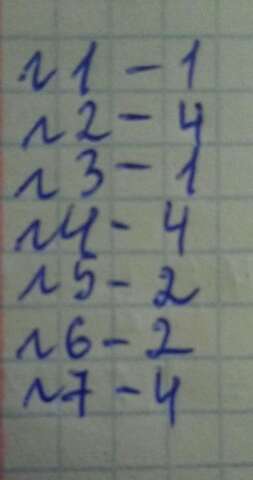 №1 - 1
№2 - 4
№3 - 1
№4 - 4
№5 - 2
№6 - 2
№7 - 4